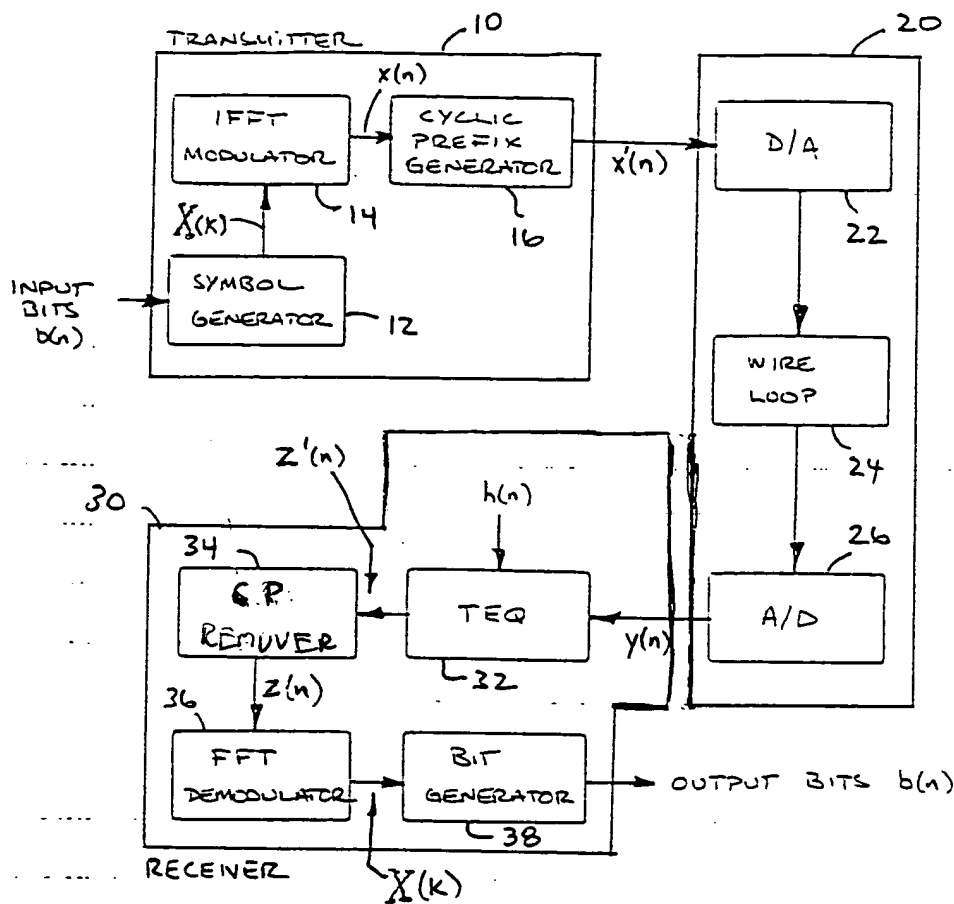 TRANSMITTER
10
20
x(n)
IFFT
MODULATOR
14
CYCLIC
PREFIX
GENERATOR
16
x'(n)
D/A
22
X(k)
INPUT
BITS
b(n)
SYMBOL
GENERATOR
12
WIRE
LOOP
24
z'(n)
h(n)
30
34
26
C.P.
REMUVER
TEQ
32
y(n)
A/D
z(n)
36
FFT
DEMODULATOR
BIT
GENERATOR
38
OUTPUT BITS b(n)
RECEIVER
X(k)